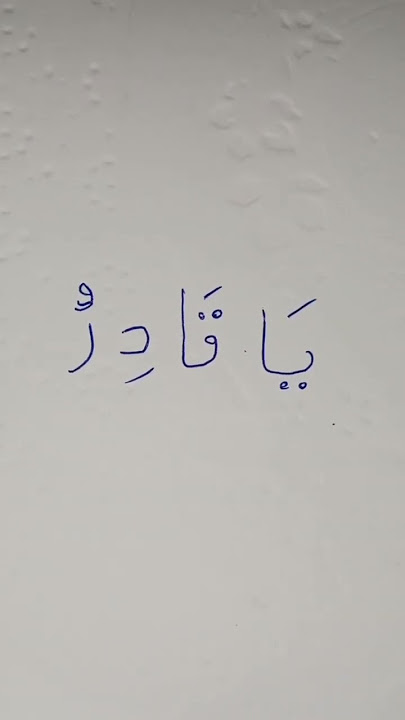 يَا قَادِرُ